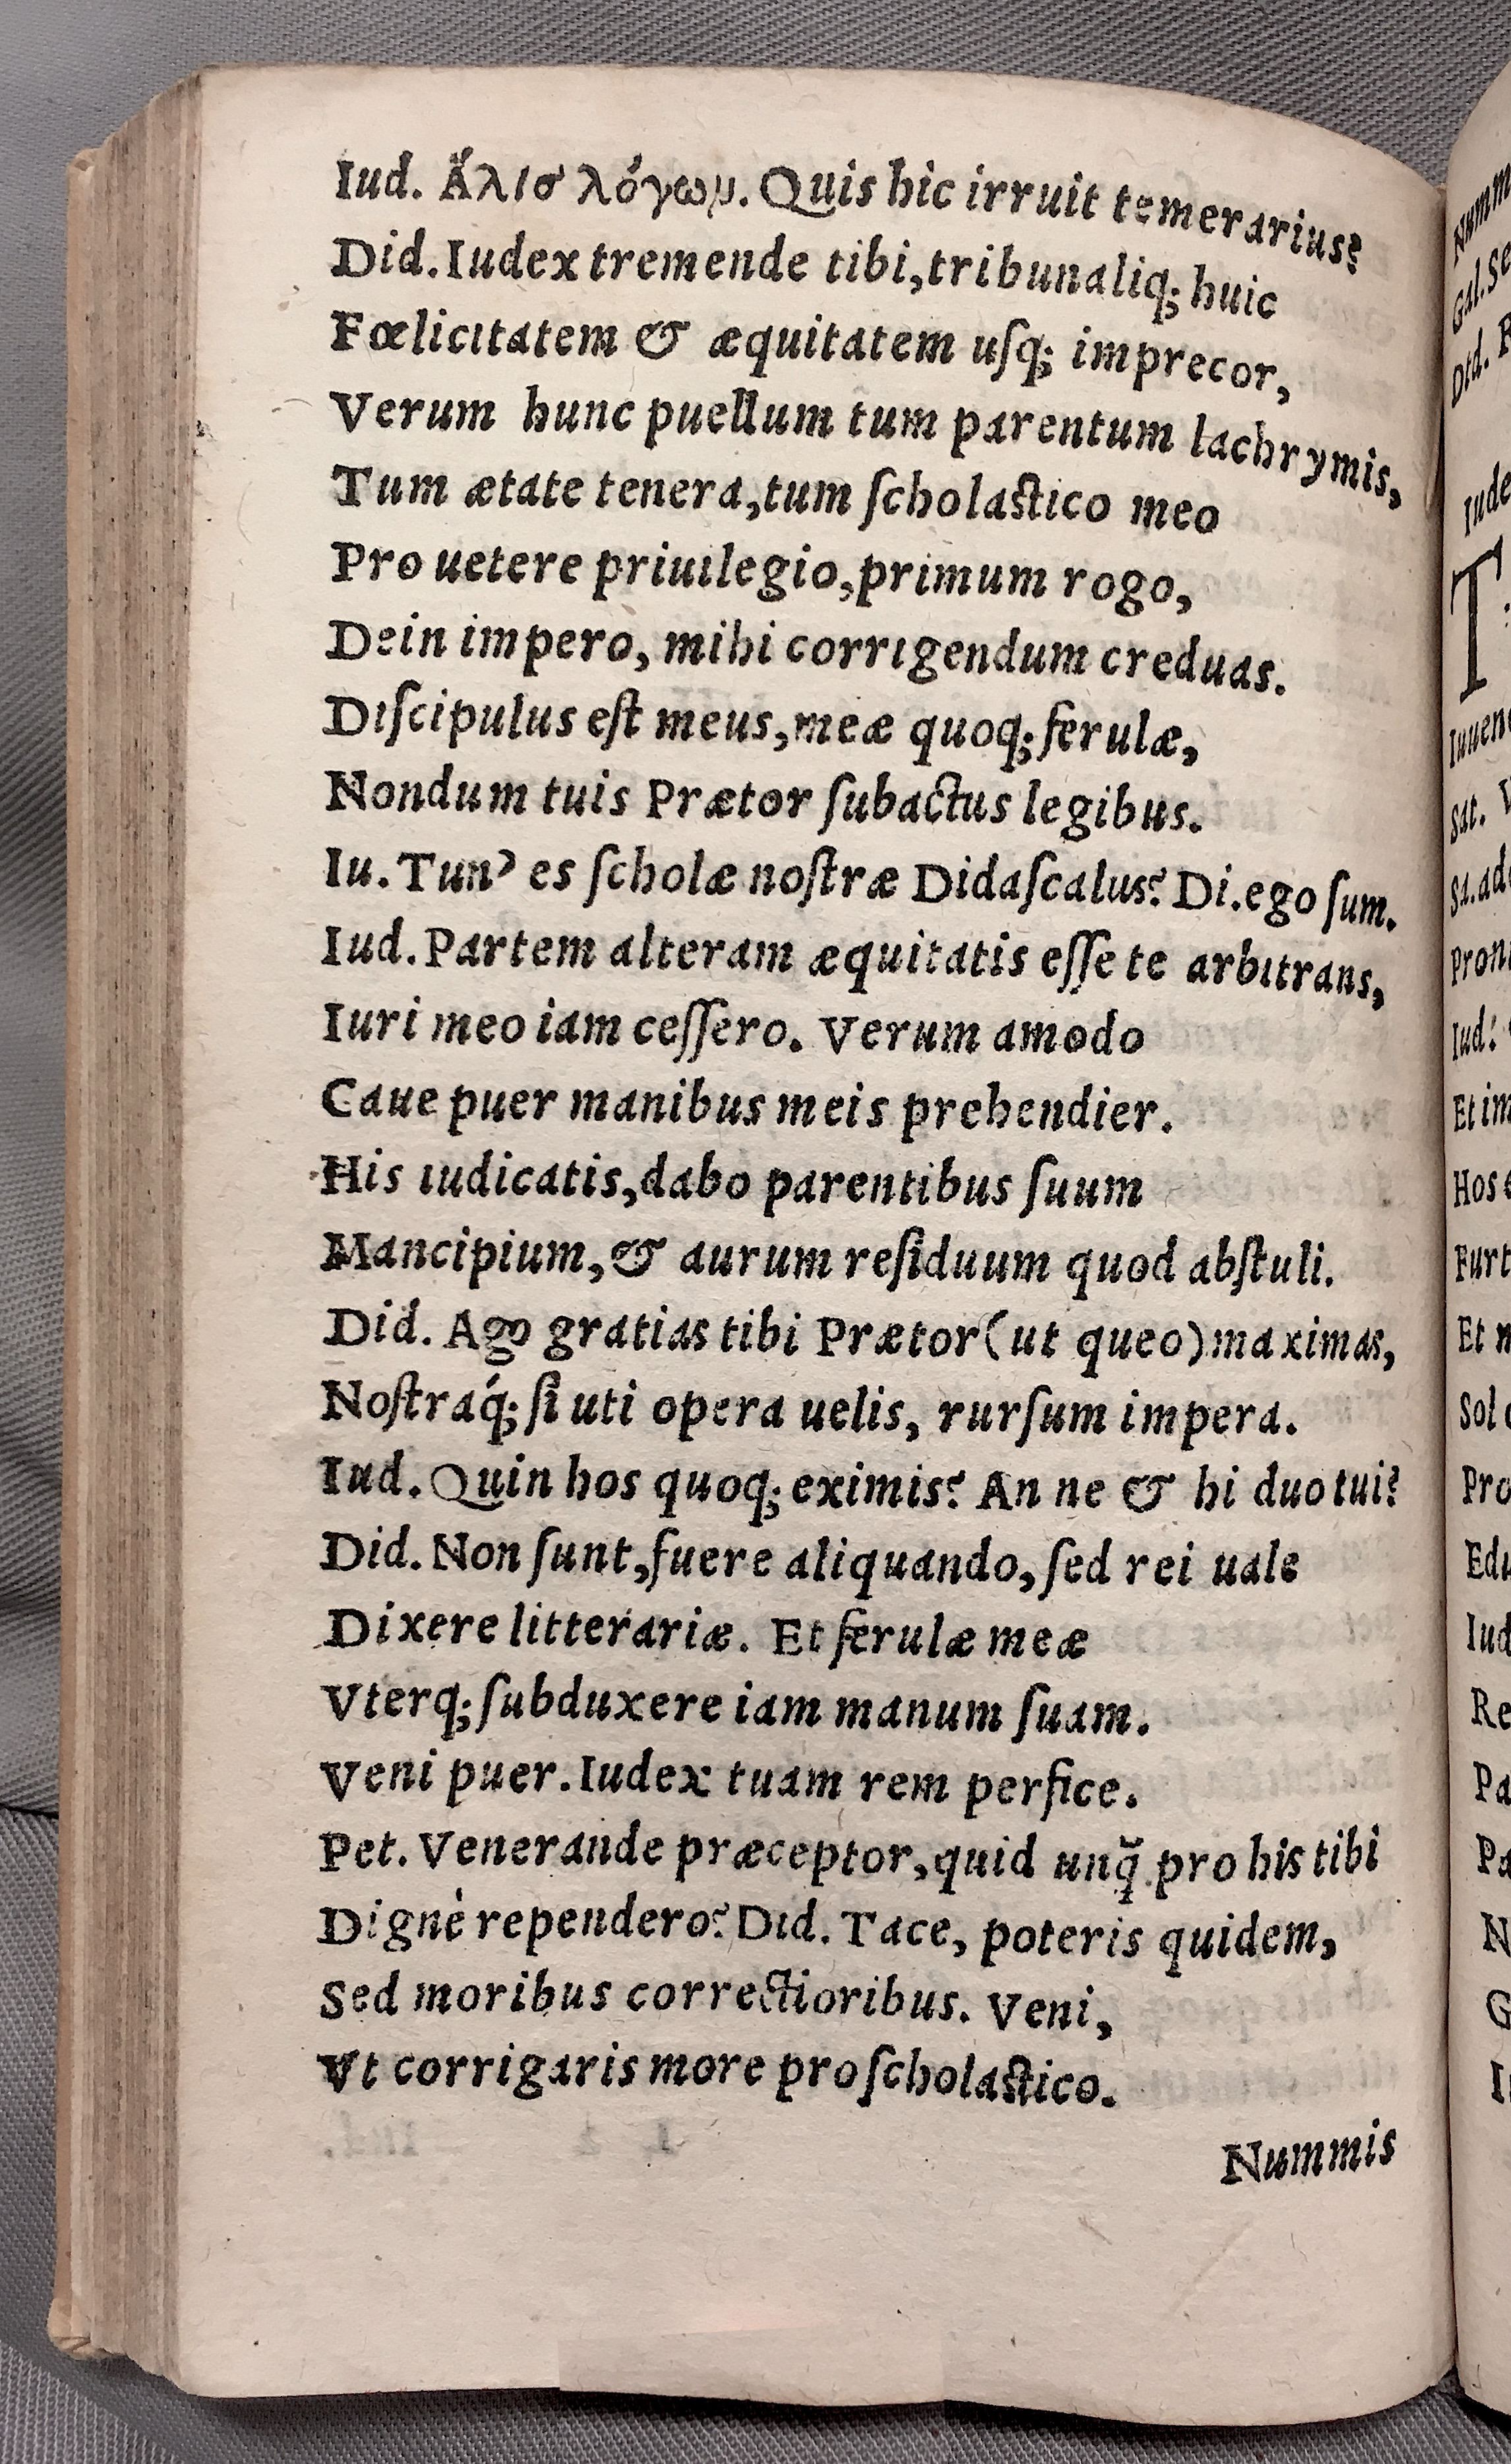 Iud. Ἅλισ λόγων. Quis hic irruit temerarius?
Did. Iudex tremende tibi, tribunaliq; huic
Fœlicitatem & æquitatem uſq; imprecor,
Verum hunc puellum tum parentum lachrymis,
Tum ætate tenera, tum ſcholaſtico meo
Pro uetere priuilegio, primum rogo,
Dein impero, mihi corrigendum creduas.
Diſcipulus eſt meus, meæ quoq; ferulæ,
Nondum tuis Prætor ſubactus legibus.
Iu. Tun' es ſcholæ noſtræ Didaſcalus? Di. ego ſum.
Iud. Partem alteram æquitatis eſſe te arbitrans,
Iuri meo iam ceſſero. Verum amodo
Caue puer manibus meis prehendier.
His iudicatis, dabo parentibus ſuum
Mancipium, & aurum reſiduum quod abſtuli.
Did. Ago gratias tibi Prætor (ut queo) maximas,
Noſtraq́; ſi uti opera uelis, rurſum impera.
Iud. Quin hos quoq; eximis? An ne & hi duo tui?
Did. Non ſunt, fuere aliquando, ſed rei uale
Dixere litterariæ. Et ferulæ meæ
Vterq; ſubduxere iam manum ſuam.
Veni puer. Iudex tuam rem perfice.
Pet. Venerande præceptor, quid unq̃ pro his tibi
Dignè rependero? Did. Tace, poteris quidem,
Sed moribus correctioribus. Veni,
Vt corrigaris more pro ſcholaſtico.
Nummis